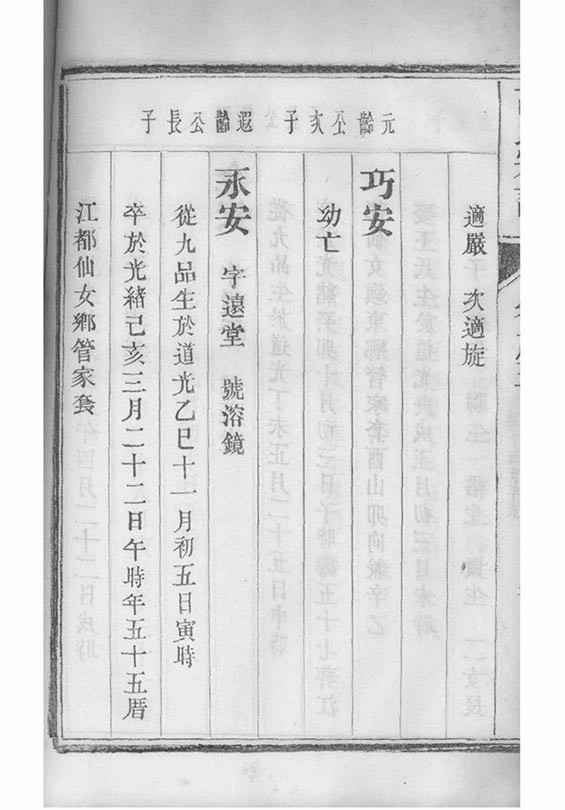 適嚴 次適旋
元齡公次子
巧安
幼亡
遐齡公長子
永安 字遠堂 號溶鏡
從九品生於道光乙巳十一月初五日寅時
卒於光緒己亥三月二十二日午時年五十五厝
江都仙女鄉管家套